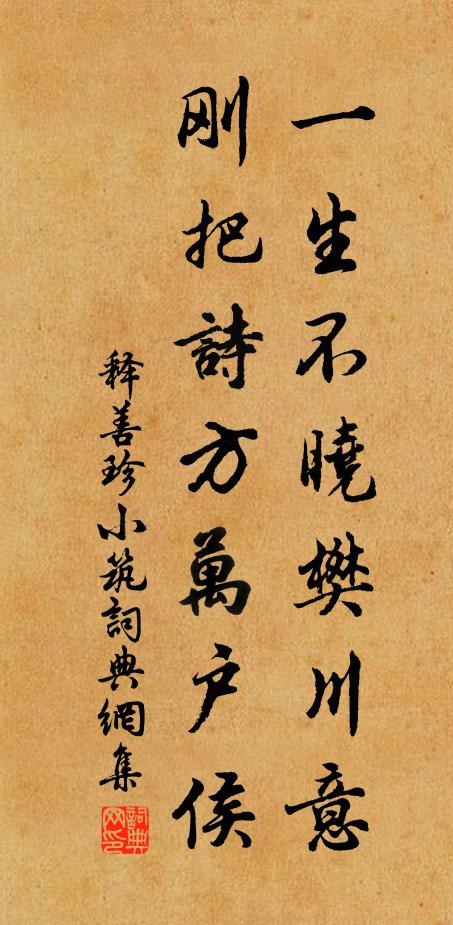 一生不曉樊川意
刚把詩方萬户侯
释善珍小筑詞典網集
詞典网印